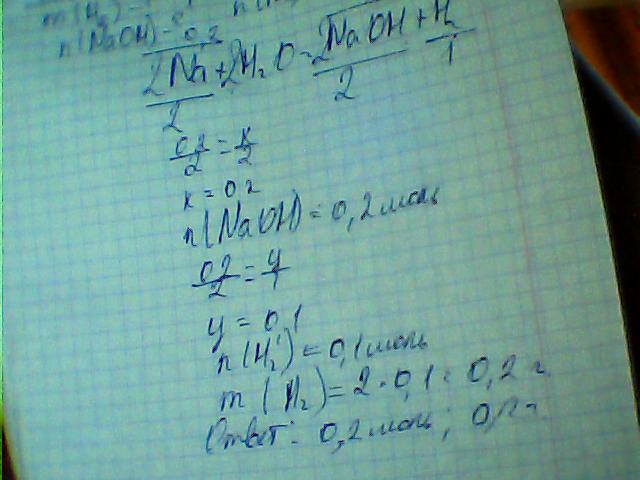 m(H₂) -
n(NaOH) - 0,2
2Na + 2H₂O = 2NaOH + H₂
2 2 1
0,2/2 = x/2
x = 0,2
n(NaOH) = 0,2 моль
0,2/2 = y/1
y = 0,1
n(H₂) = 0,1 моль
m(H₂) = 2 · 0,1 = 0,2 г.
Ответ: 0,2 моль; 0,2 г.